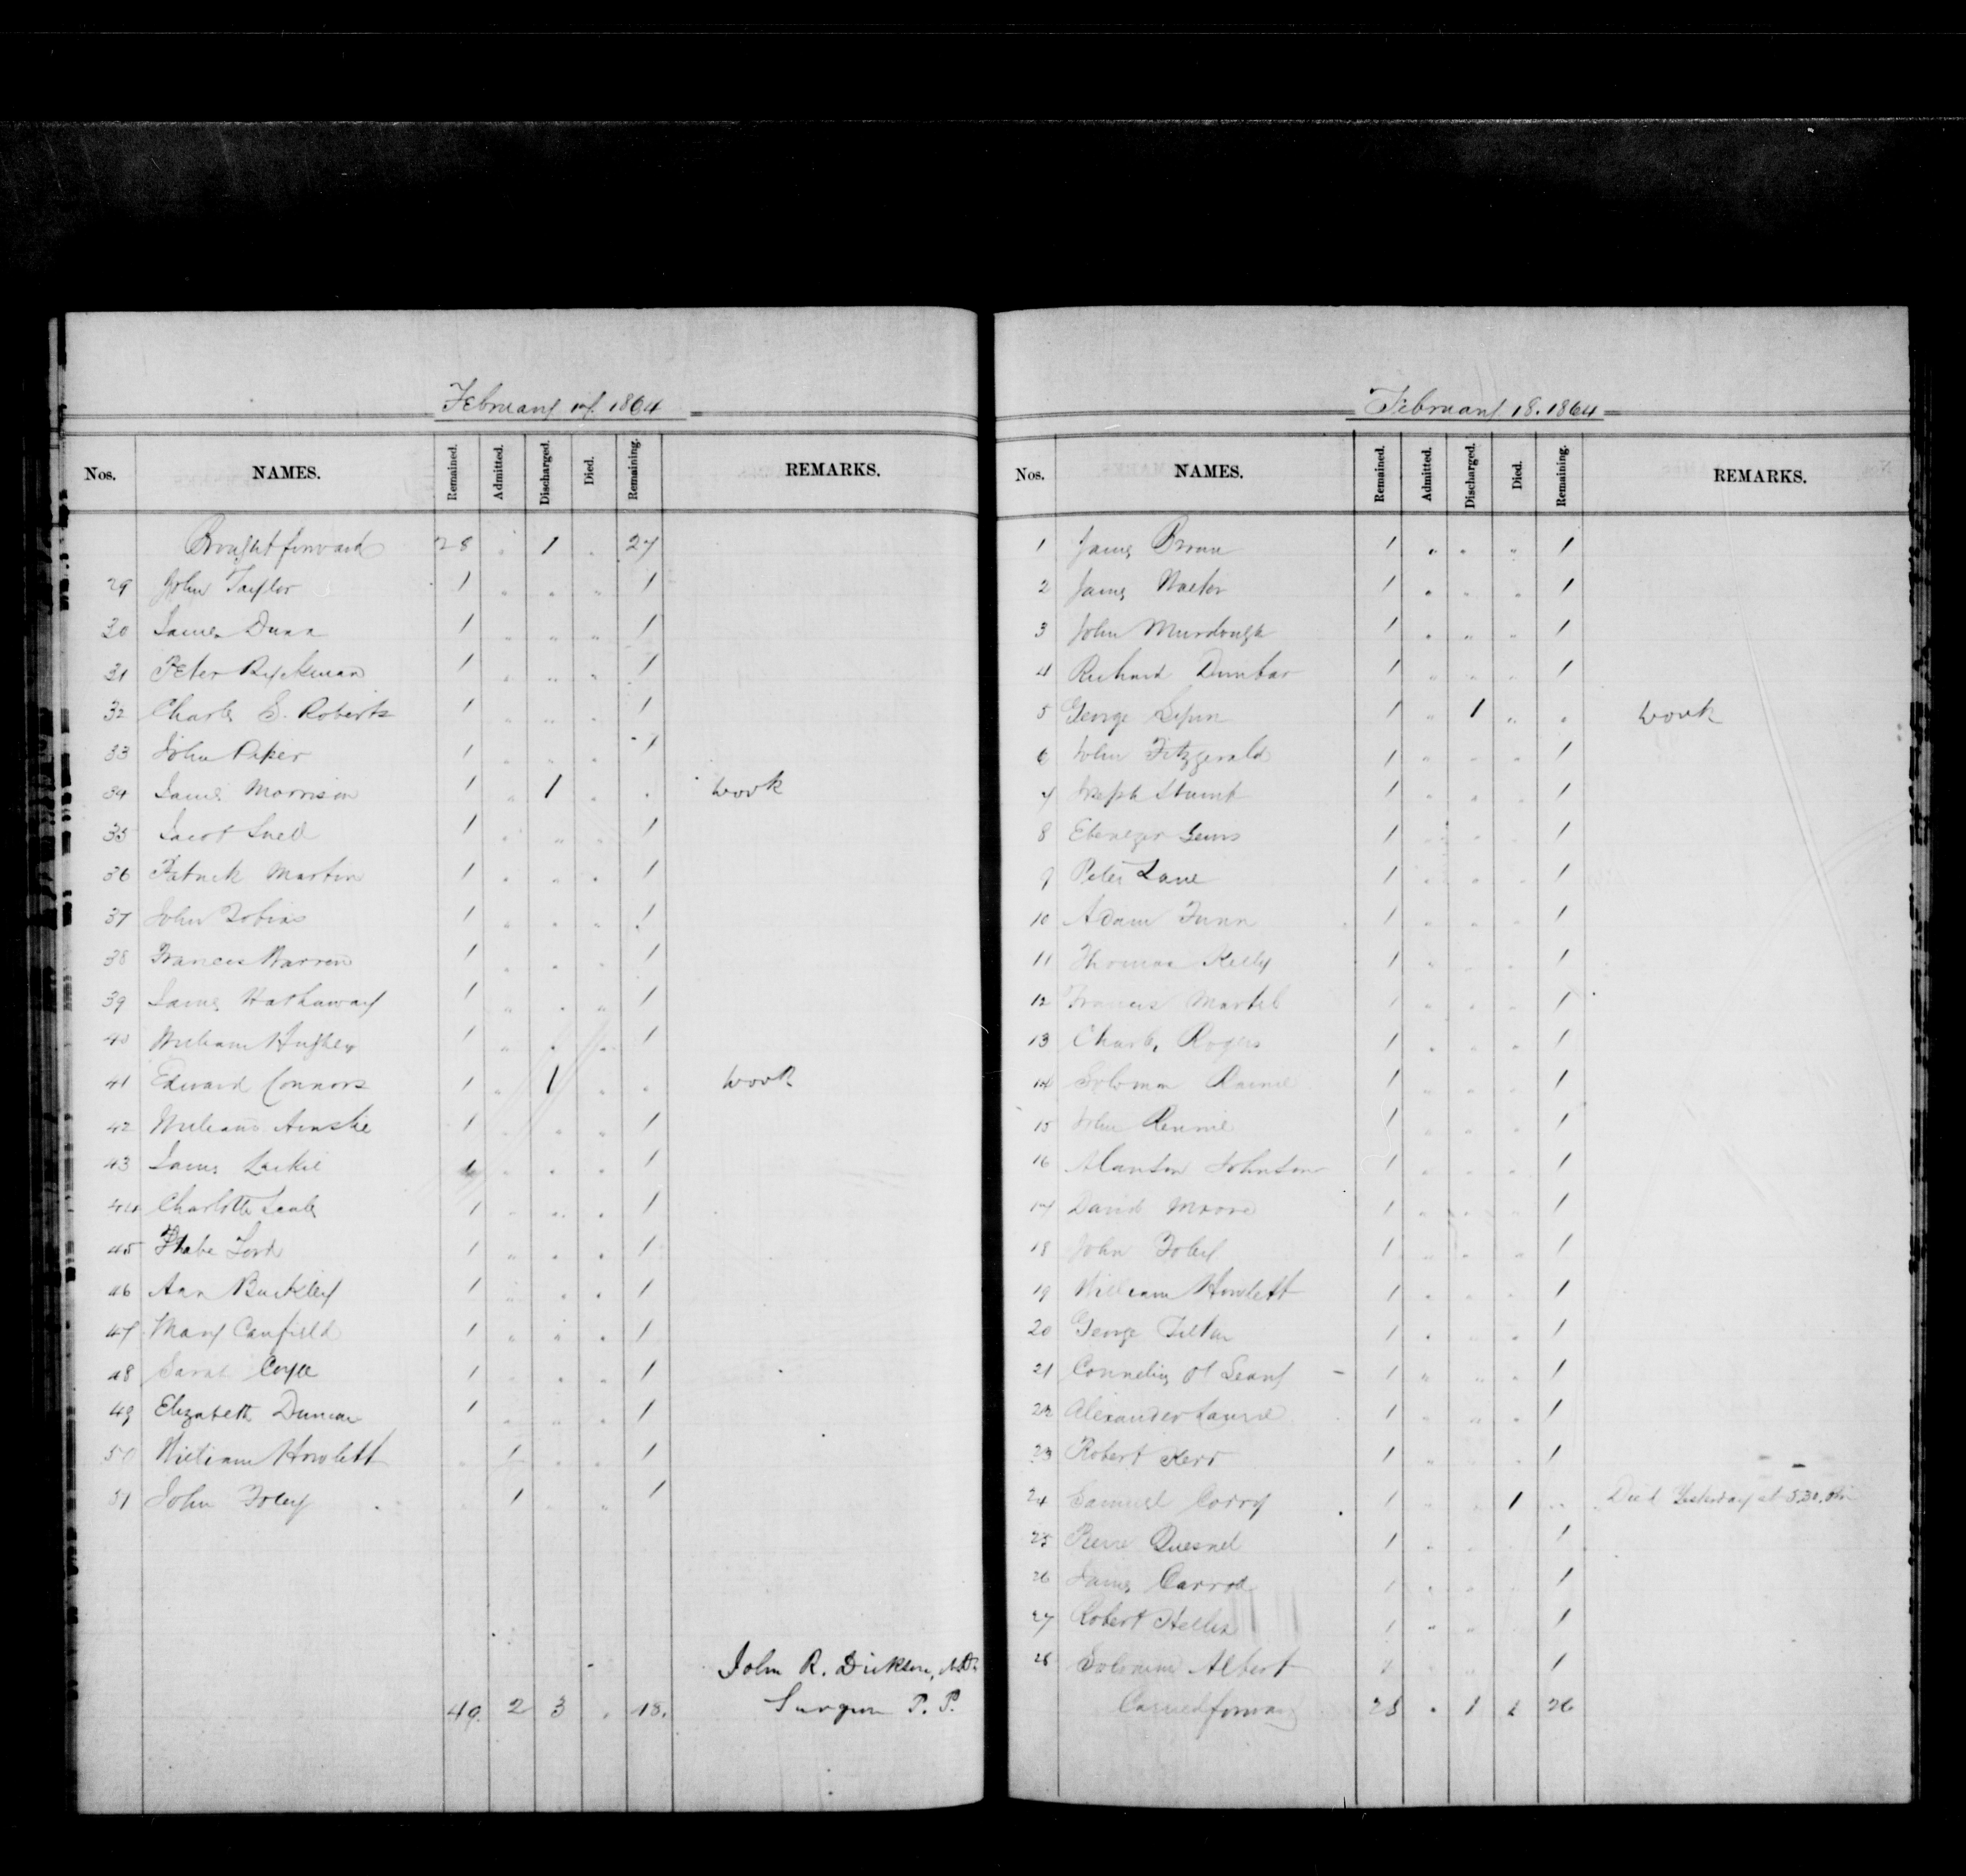 February 17. 1864
Nos. NAMES. Remained. Admitted. Discharged. Died. Remaining. REMARKS.
Brought forward 28 " 1 " 27
29 John Taylor 1 " " " 1
30 James Dunn 1 " " " 1
31 Peter Ryckman 1 " " " 1
32 Charles S. Roberts 1 " " " 1
33 John Piper 1 " " " 1
34 James Morrison 1 " 1 " " work
35 Jacob Snell 1 " " " 1
36 Patrick Martin 1 " " " 1
37 John Tobias 1 " " " 1
38 Francis Warren 1 " " " 1
39 James Hathaway 1 " " " 1
40 William Hughes 1 " " " 1
41 Edward Connors 1 " 1 " " work
42 William Ainslie 1 " " " 1
43 James Lackie 1 " " " 1
44 Charlotte 1 " " " 1
45 Phebe Lord 1 " " " 1
46 Ann Buckley 1 " " " 1
47 Mary Canfield 1 " " " 1
48 Sarah Coyle 1 " " " 1
49 Elizabeth Duncan 1 " " " 1
50 William Howlett " 1 " " 1
51 John Foley " 1 " " 1
John R. Dickson, M.D.
49. 2 3 " 48. Surgeon P. P.
February 18. 1864
Nos. NAMES. Remained. Admitted. Discharged. Died. Remaining. REMARKS.
1 James Brown 1 " " " 1
2 James Walter 1 " " " 1
3 John Murdough 1 " " " 1
4 Richard Dunbar 1 " " " 1
5 George 1 " 1 " " work
6 John Fitzgerald 1 " " " 1
7 Joseph Stump 1 " " " 1
8 Ebenezer Lewis 1 " " " 1
9 Peter Lane 1 " " " 1
10 Adam Funn 1 " " " 1
11 Thomas Kelly 1 " " " 1
12 Francis Martel 1 " " " 1
13 Charles Rogers 1 " " " 1
14 Solomon 1 " " " 1
15 John Rennie 1 " " " 1
16 Alanson Johnson 1 " " " 1
17 David Moore 1 " " " 1
18 John Foley 1 " " " 1
19 William Howlett 1 " " " 1
20 George Filton 1 " " " 1
21 Cornelius O'Leary 1 " " " 1
22 Alexander Laurie 1 " " " 1
23 Robert Kerr 1 " " " 1
24 Samuel Corry 1 " " 1 " Died Yesterday at 5.30.
25 Pierre Quesnel 1 " " " 1
26 James Carrol 1 " " " 1
27 Robert Hellis 1 " " " 1
28 Solomon Albert 1 " " " 1
Carried forward 28 " 1 1 26